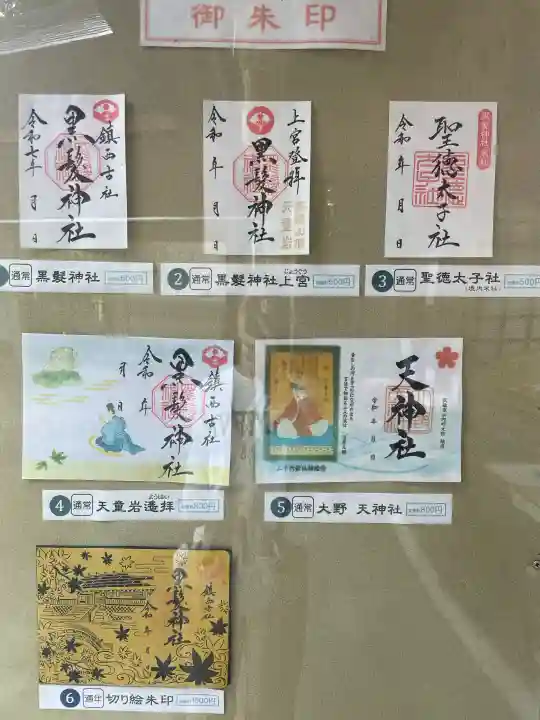 御朱印
鎮西古社
黒髪神社
令和七年 月 日
上宮登拝
黒髪神社
令和 年 月 日
天童岩
聖徳太子社
令和 年 月 日
通常 黒髪神社 500円
2 通常 黒髪神社上宮 500円
じょうぐう
3 通常 聖徳太子社 500円
(境内末社)
鎮西古社
黒髪神社
令和 年 月 日
天神社
令和 年 月 日
4 通常 天童岩遙拝
ようはい
5 通常 大野 天神社 800円
鎮西古社
黒髪神社
令和 年 月 日
6 通年 切り絵朱印